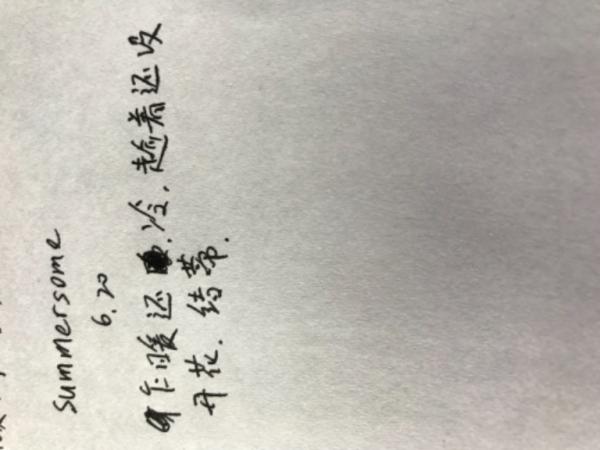 Summersome
6.20
乍暖还冷,趁着还没
开花.结蒂.